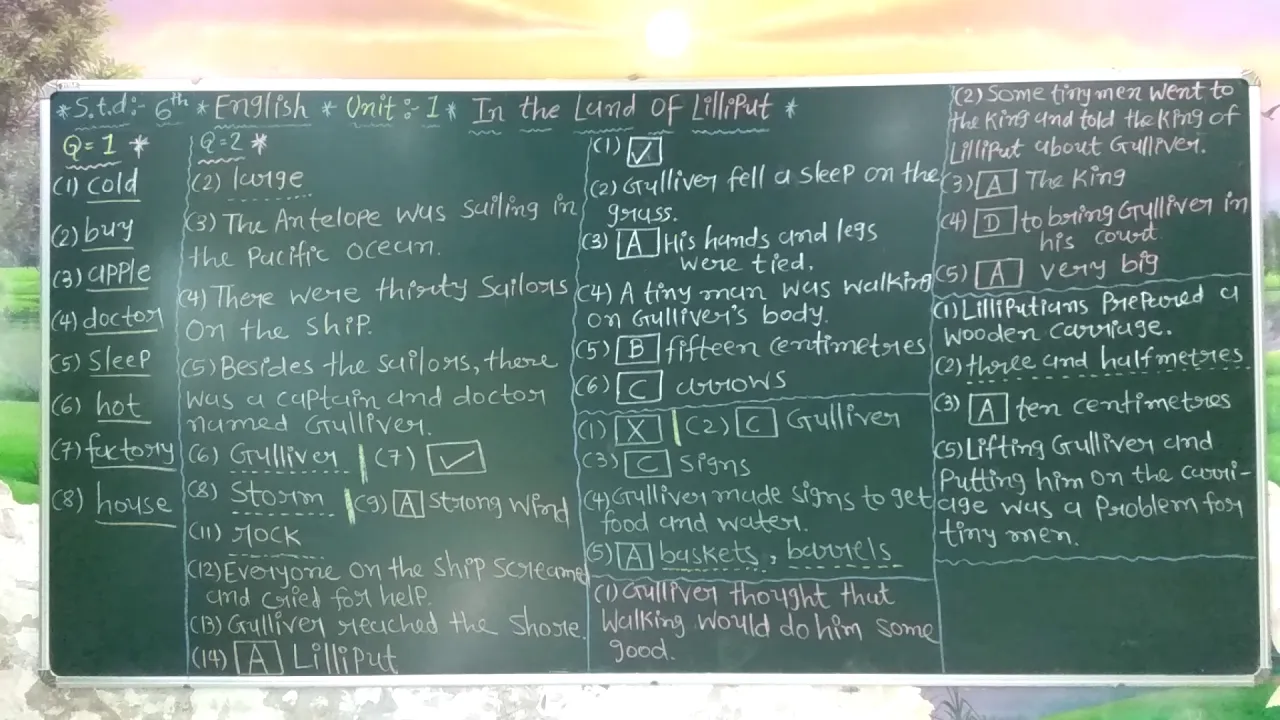 *S.t.d:- 6th * English * Unit:-1 * In the Land of Lilliput *
Q=1 *
(1) cold
(2) buy
(3) apple
(4) doctor
(5) Sleep
(6) hot
(7) factory
(8) house
Q=2 *
(2) large
(3) The Antelope was sailing in
the Pacific Ocean.
(4) There were thirty Sailors
on the ship.
(5) Besides the sailors, there
was a captain and doctor
named Gulliver.
(6) Gulliver | (7) ✓
(8) Storm | (9) A Strong Wind
(11) rock
(12) Everyone on the ship screamed
and cried for help.
(13) Gulliver reached the Shore.
(14) A Lilliput
(1) ✓
(2) Gulliver fell a sleep on the
grass.
(3) A His hands and legs
were tied.
(4) A tiny man was walking
on Gulliver's body.
(5) B fifteen centimetres
(6) C arrows
(1) X | (2) C Gulliver
(3) C Signs
(4) Gulliver made signs to get
food and water.
(5) A baskets, barrels
(1) Gulliver thought that
walking would do him some
good.
(2) Some tiny men went to
the King and told the King of
Lilliput about Gulliver.
(3) A The King
(4) D to bring Gulliver in
his court
(5) A very big
(1) Lilliputians Prepared a
wooden carriage.
(2) three and half metres
(3) A ten centimetres
(5) Lifting Gulliver and
Putting him on the carri-
age was a Problem for
tiny men.